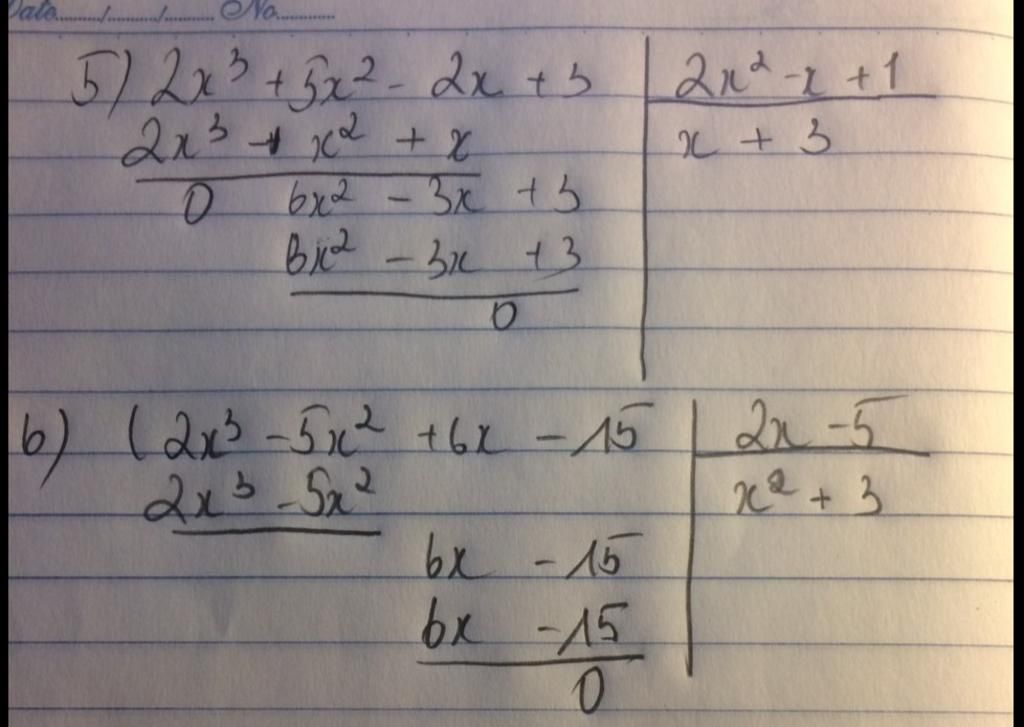 Date....../....../...... No............
5) 2x³ + 5x² - 2x + 3 | 2x² - x + 1
2x³ - x² + x | x + 3
0 6x² - 3x + 3
6x² - 3x + 3
0
6) (2x³ - 5x² + 6x - 15 | 2x - 5
2x³ - 5x² | x² + 3
6x - 15
6x - 15
0